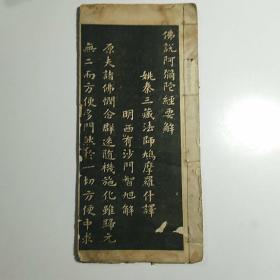 佛說阿彌陀經要解
姚秦三藏法師鳩摩羅什譯
明西有沙門智旭解
原夫諸佛憫念群迷隨機施化雖歸元
無二而方便多門然於一切方便中求